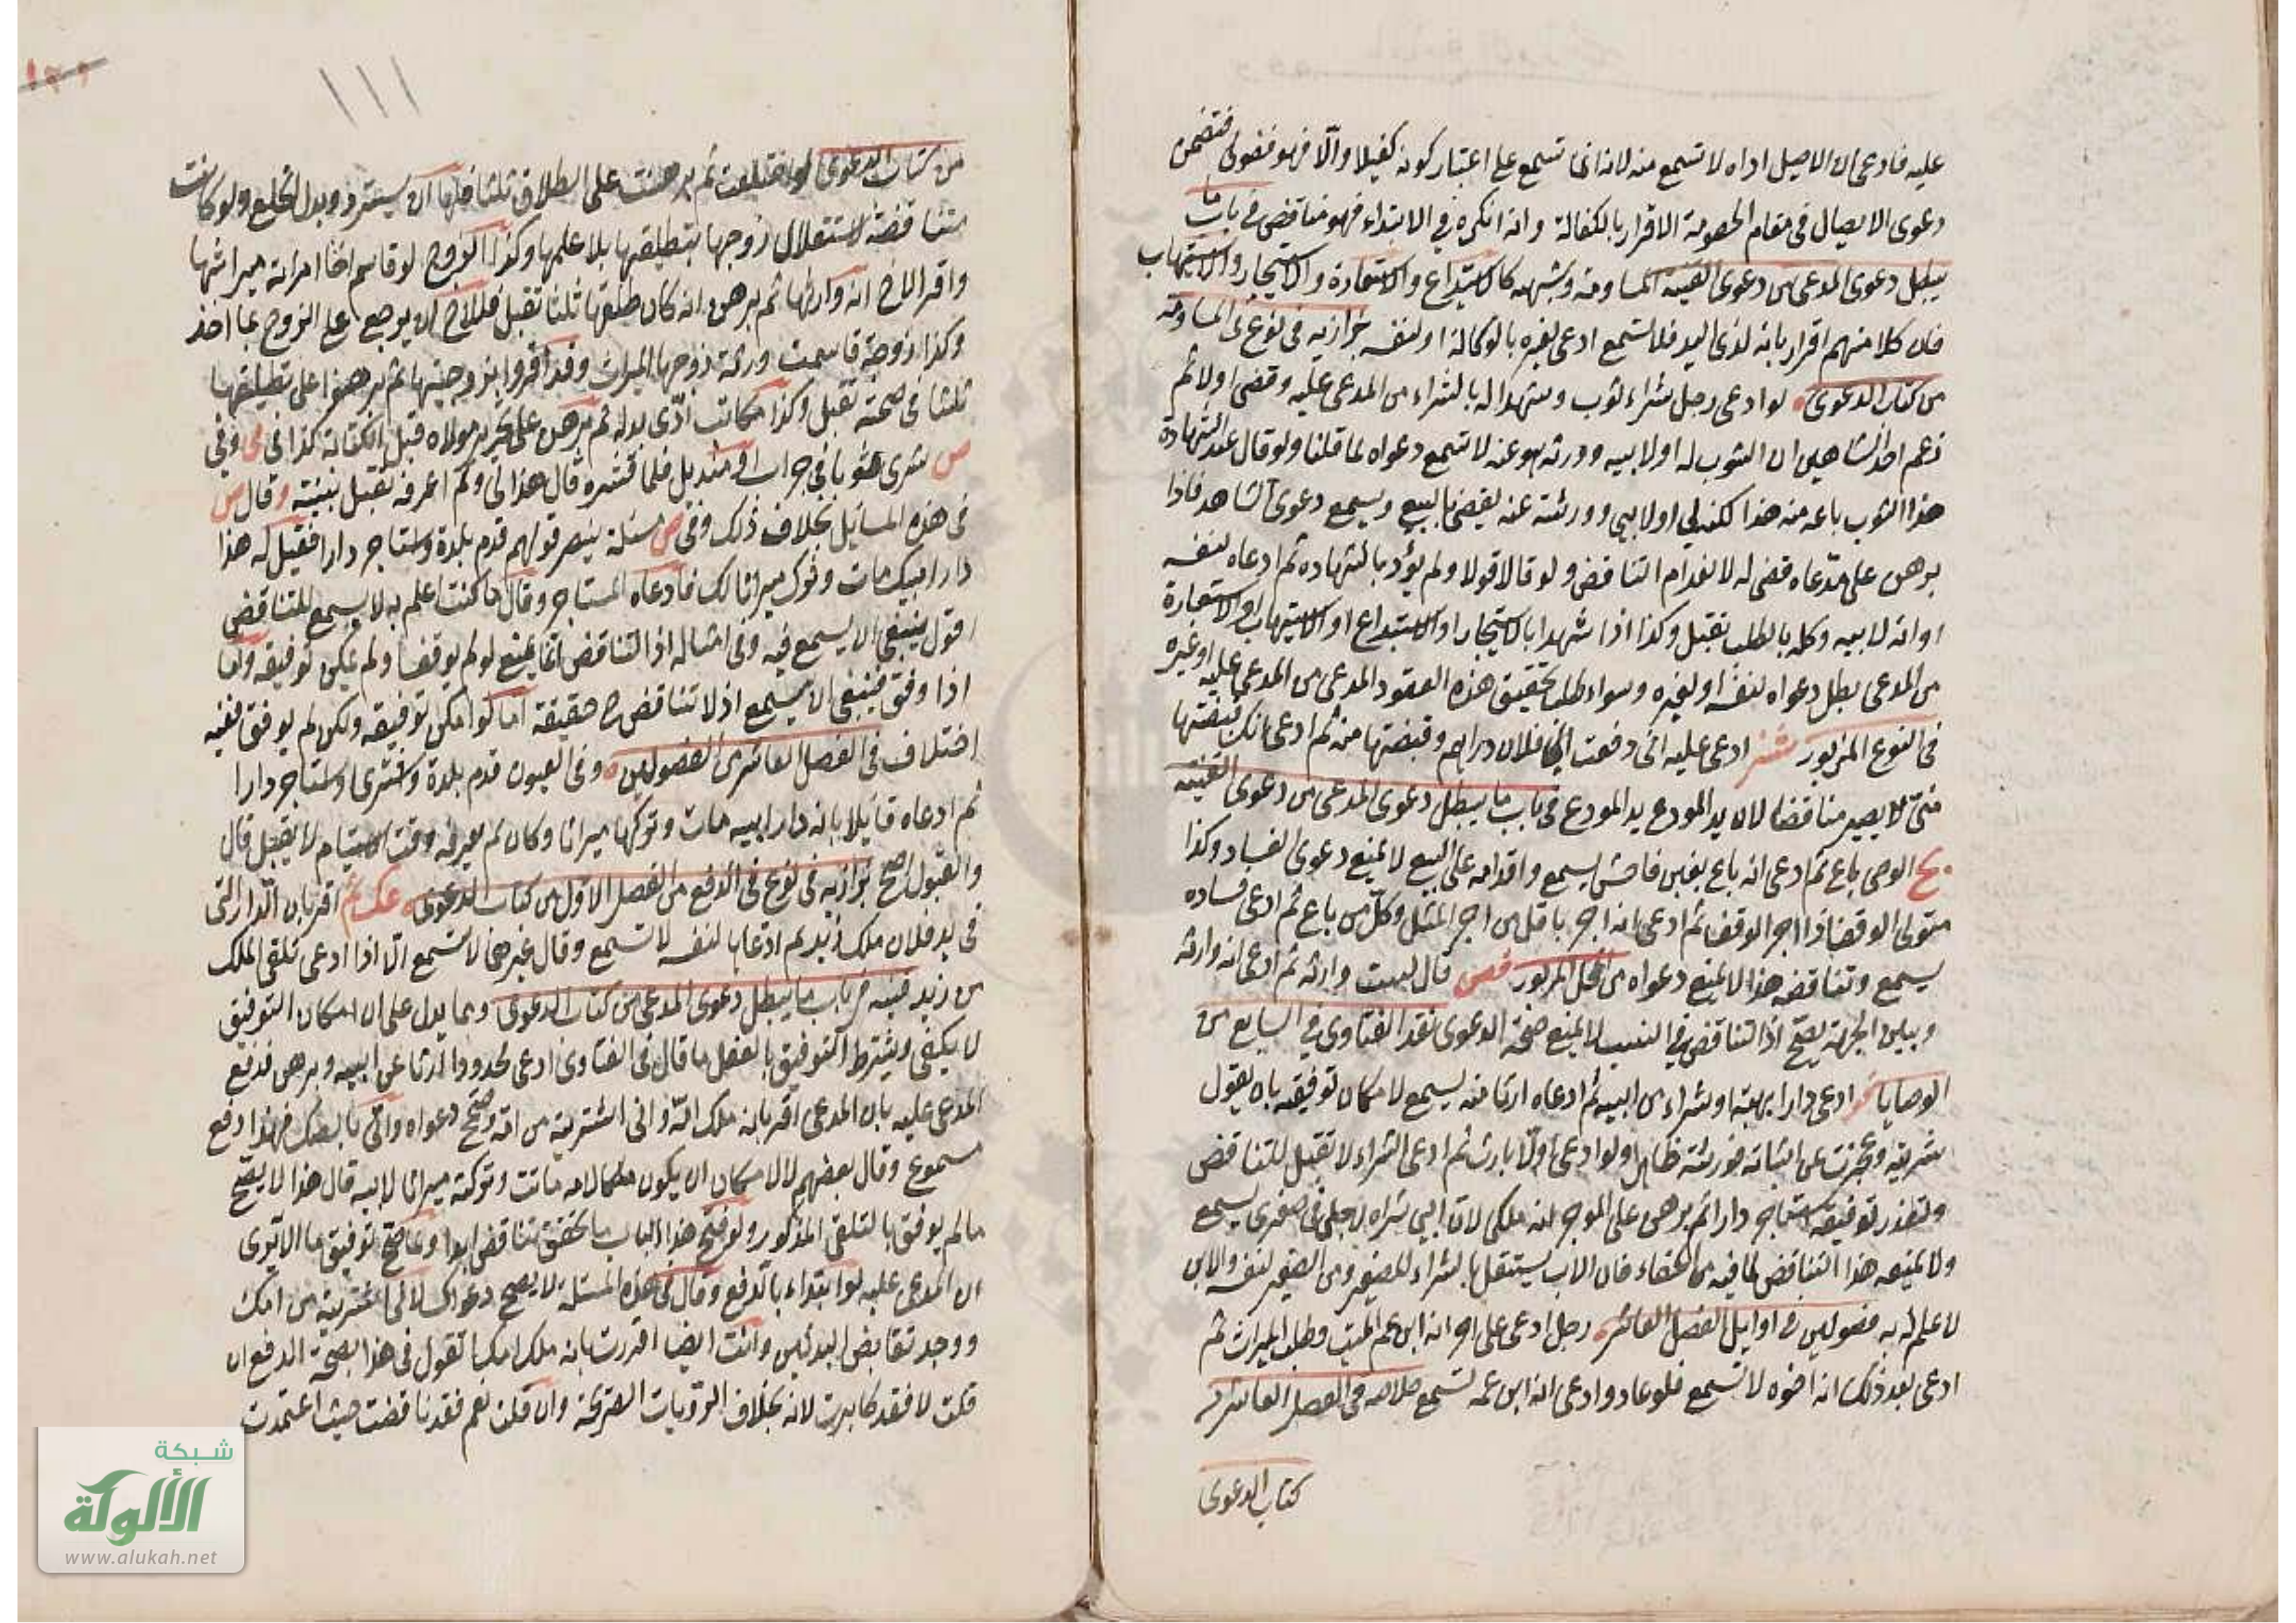 عليه فادعى ان الاصيل اداه لا تسمع منه لانه انما تسمع على اعتبار كونه كفيلا والّا فهو فضولى فتضمن
دعوى الايصال فى مقام الخصومة الاقرار بالكفالة وانه انكره فى الابتداء فهو مناقض فى باب ما
يبطل دعوى المدعى من دعوى القنية المساومة وشبهه كالاستيداع والاستعارة والاستيجار والاستيهاب
فان كلا منهم اقرار بانه لذى اليد فلا تسمع ادعى لغيره بالوكالة او لنفسه بزازيه فى نوع فى المساومة
من كتاب الدعوى لو ادعى رجل شراء ثوب وشهدا له بالشراء من المدعى عليه وقضى او لا ثم
زعم احد الشاهدين ان الثوب له او لابيه وورثه هو عنه لا تسمع دعواه لما قلنا ولو قال عند الشهادة
هذا الثوب باعه منه هذا لكنه لي او لابيى وورثته عنه يقضى بالبيع ويسمع دعوى الشاهد فاذا
برهن على مدّعاه قضى له لانعدام التناقض ولو قالا قولا ولم يؤد بالشهاده ثم ادعاه لنفسه
او انه لابيه وكله بالطلب تقبل وكذا اذا شهدا بالاستيجار او الاستيداع او الاستيهاب او الاستعارة
من المدعى بطل دعواه لنفسه او لغيره وسواء طلب تحقيق هذه العقود المدعى من المدعى عليه او غيره
فى النوع المزبور ادعى عليه انى دفعت الى فلان دراهم وقبضتها منه ثم ادعى انك قبضتها
منى لا يصير مناقضا لان يد المودع يد المودع فى باب ما يبطل دعوى المدعى من دعوى القنية
الوصى باع ثم ادعى انه باع بغبن فاحش يسمع واقدامه على البيع لا يمنع دعوى الفساد وكذا
متولى الوقف اذا اجر الوقف ثم ادعى انه اجر باقل من اجر المثل وكلّ من باع ثم ادعى فساده
يسمع وتناقضه هذا لا يمنع دعواه من المحل المزبور قال لست وارثه ثم ادعى انه وارثه
وبين الجهة يصحّ اذ التناقض فى النسب لا يمنع صحّة الدعوى نقد الفتاوى فى السابع من
الوصايا ادعى دارا بهبة او شراء من ابيه ثم ادعاه ارثا منه يسمع لامكان توفيقه بان يقول
شريته وعجزت عن اثباته فورثته ظاهرا ولو ادعى اوّلا بارث ثم ادعى الشراء لا تقبل للتناقض
وتعذر توفيقه استاجر دارا ثم برهن على الموجر انه ملكى لان ابيى شراه لاجلى فى صغرى يسمع
ولا يمنعه هذا التناقض لما فيه من الخفاء فان الاب يستقل بالشراء للصغير ومن الصغير لنفسه والابن
لا علم له به فصولين فى اوايل الفصل العاشر رجل ادعى على اخر انه ابن عم الميت وطلب الميراث ثم
ادعى بعد ذلك انه اخوه لا تسمع فلو عاد وادعى انه ابن عمه تسمع خلاصه فى الفصل العاشر من
كتاب الدعوى
١١١
من كتاب الدعوى لو اختلعت ثم برهنت على الطلاق ثلثا فلها ان يسترد وبدل الخلع ولو كانت
متناقضة لاستقلال زوجها بتطليقها بلا علمها وكذا الزوج لو قاسم اخا امراته ميراثها
واقر الاخ انه وارثها ثم برهن انه كان طلقها ثلثا تقبل فللاخ ان يرجع على الزوج بما اخذ
وكذا زوجة قاسمت ورثة زوجها الميراث وقد اقروا بزوجيتها ثم برهنوا على تطليقها
ثلثا فى صحته تقبل وكذا مكاتب ادّى بدله ثم برهن على تحرير مولاه قبل الكتابة كذا فى وفى
ص شرى ثوبا فى جراب او منديل فلما نشره قال هذا لى ولم اعرفه تقبل بينته وقال ص
فى هذه المسايل بخلاف ذلك وفى ص مسئلة ينصر قولهم قدم بلدة واستاجر دارا فقيل له هذا
دار ابيك مات وترك ميراثا لك فادعاه المستاجر وقال ما كنت اعلم به لا يسمع للتناقض
اقول ينبغى ان يسمع فيه وفى امثاله اذ التناقض انما يمنع لو لم يوفق ولم يمكن توفيقه واما
اذا وفق فينبغى ان يسمع اذ لا تناقض ح حقيقة اما لو امكن توفيقه ولكن لم يوفق ففيه
اختلاف فى الفصل العاشر من الفصولين وفى العيون قدم بلدة واشترى او استاجر دارا
ثم ادعاه قايلا بانه دار ابيه مات وتركها ميراثا وكان لم يعرفه وقت الاستيام لا يقبل قال
والقبول اصح بزازيه فى نوع فى الدفع من الفصل الاول من كتاب الدعوى اقر بان الدار التى
فى يد فلان ملك زيد ثم ادعاها لنفسه لا تسمع وقال غيره لا تسمع الّا اذا ادعى تلقى الملك
من زيد قنيه فى باب ما يبطل دعوى المدعى من كتاب الدعوى ومما يدل على ان امكان التوفيق
لا يكفى ويشترط التوفيق بالفعل ما قال فى الفتاوى ادعى محدودا ارثا عن ابيه وبرهن فدفع
المدعى عليه بان المدعى اقر بانه ملك امّه وانى اشتريته من امّه وصحّ دعواه وانى بالصك فهذا دفع
مسموع وقال بعضهم لا لامكان ان يكون ملكا لامه ماتت وتركته ميراثا لابيه قال هذا لا يصحّ
ما لم يوفق بالتلقى المذكور ولو فتح هذا الباب ما تحقق تناقض ابدا وما صحّ توفيق ما الا ترى
ان المدعى عليه لو ابتداء بالدفع وقال فى هذه المسئلة لا يصح دعواك لانى اشتريته من امك
ووجد تقابض البدلين وانت ايضا اقررت بانه ملك امك ما تقول فى هذا بصحّة الدفع ان
قلت لا فقد كابرت لانه بخلاف الرّوايات الصريحة وان قلت نعم فقد ناقضت حيث اعتمدت
شبكة
الألوكة
www.alukah.net